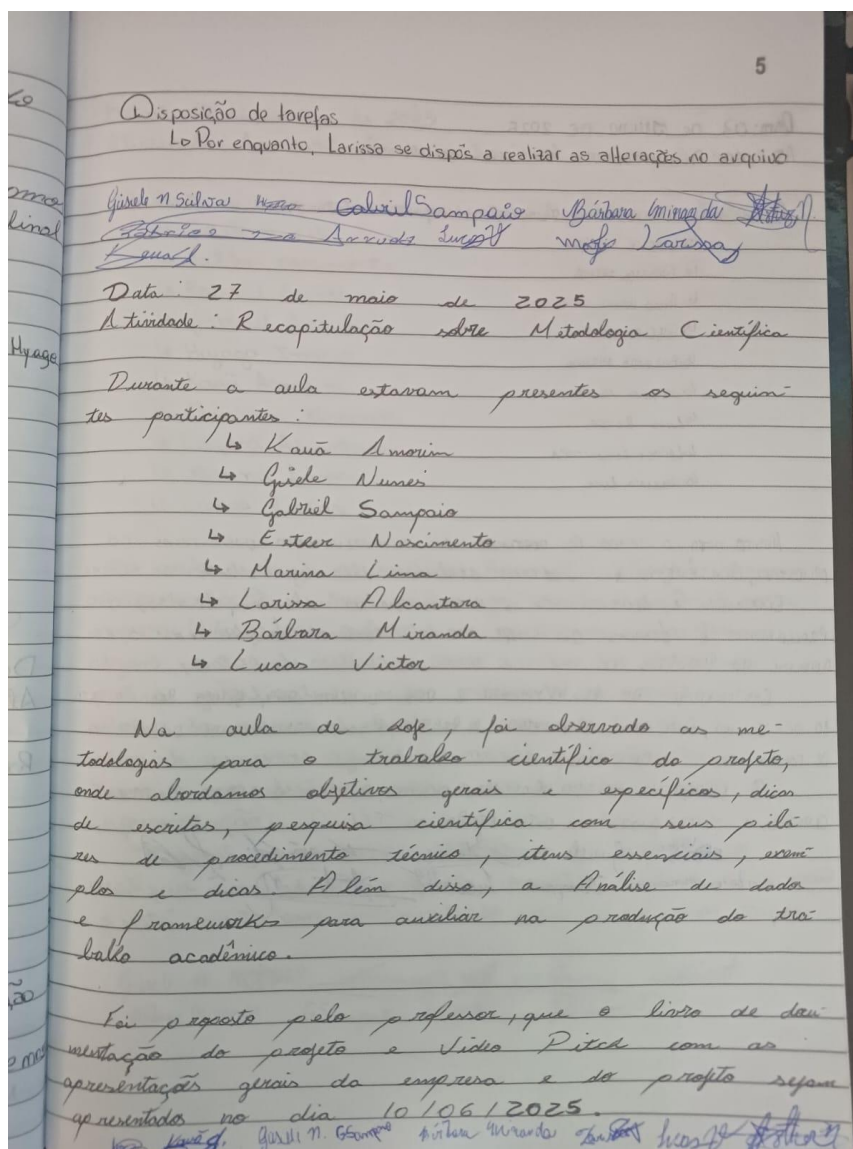 5
Disposição de tarefas
↳ Por enquanto, Larissa se dispôs a realizar as alterações no arquivo
omo
linal
Gisele N Scilva Gabriel Sampaio Bárbara Miranda
Arruda Larissa
Data: 27 de maio de 2025
Atividade: Recapitulação sobre Metodologia Científica
Hyago
Durante a aula estavam presentes os seguin-
tes participantes:
↳ Kauã Amorim
↳ Gisele Nunes
↳ Gabriel Sampaio
↳ Esther Nascimento
↳ Marina Lima
↳ Larissa Alcantara
↳ Bárbara Miranda
↳ Lucas Victor
Na aula de hoje, foi observado as me-
todologias para o trabalho científico do projeto,
onde abordamos objetivos gerais e específicos, dicas
de escritas, pesquisa científica com seus pila-
res de procedimento técnico, itens essenciais, exem-
plos e dicas Além disso, a Análise de dados
e frameworks para auxiliar na produção do tra-
balho acadêmico.
ção
Foi proposto pelo professor, que o livro de docu-
mentação do projeto e Vídeo Pitch com as
apresentações gerais da empresa e do projeto sejam
apresentados no dia 10/06/2025.
Kauã A. Gisele N. GSampaio Bárbara Miranda Lucas V